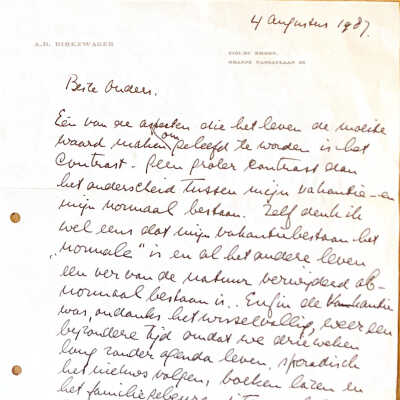 4 Augustus 1987.
A.D. DIRKZWAGER
ORANJE NASSAULAAN
Beste Ouders.
Eén van de aspecten die het leven de moeite
waard maken om geleefd te worden is het
Contrast. Geen groter contrast dan
het onderscheid tussen mijn vakantie- en
mijn normaal bestaan. Zelf denk ik
wel eens dat mijn vakantiebestaan het
"normale" is en al het andere leven
een ver van de natuur verwijderd ab-
normaal bestaan is. Enfin de Vakantie
was, ondanks het wisselvallig weer een
bijzondere tijd omdat we drie weken
lang zonder agenda leven, sporadisch
het nieuws volgen, boeken lazen en
het familiegebeuren